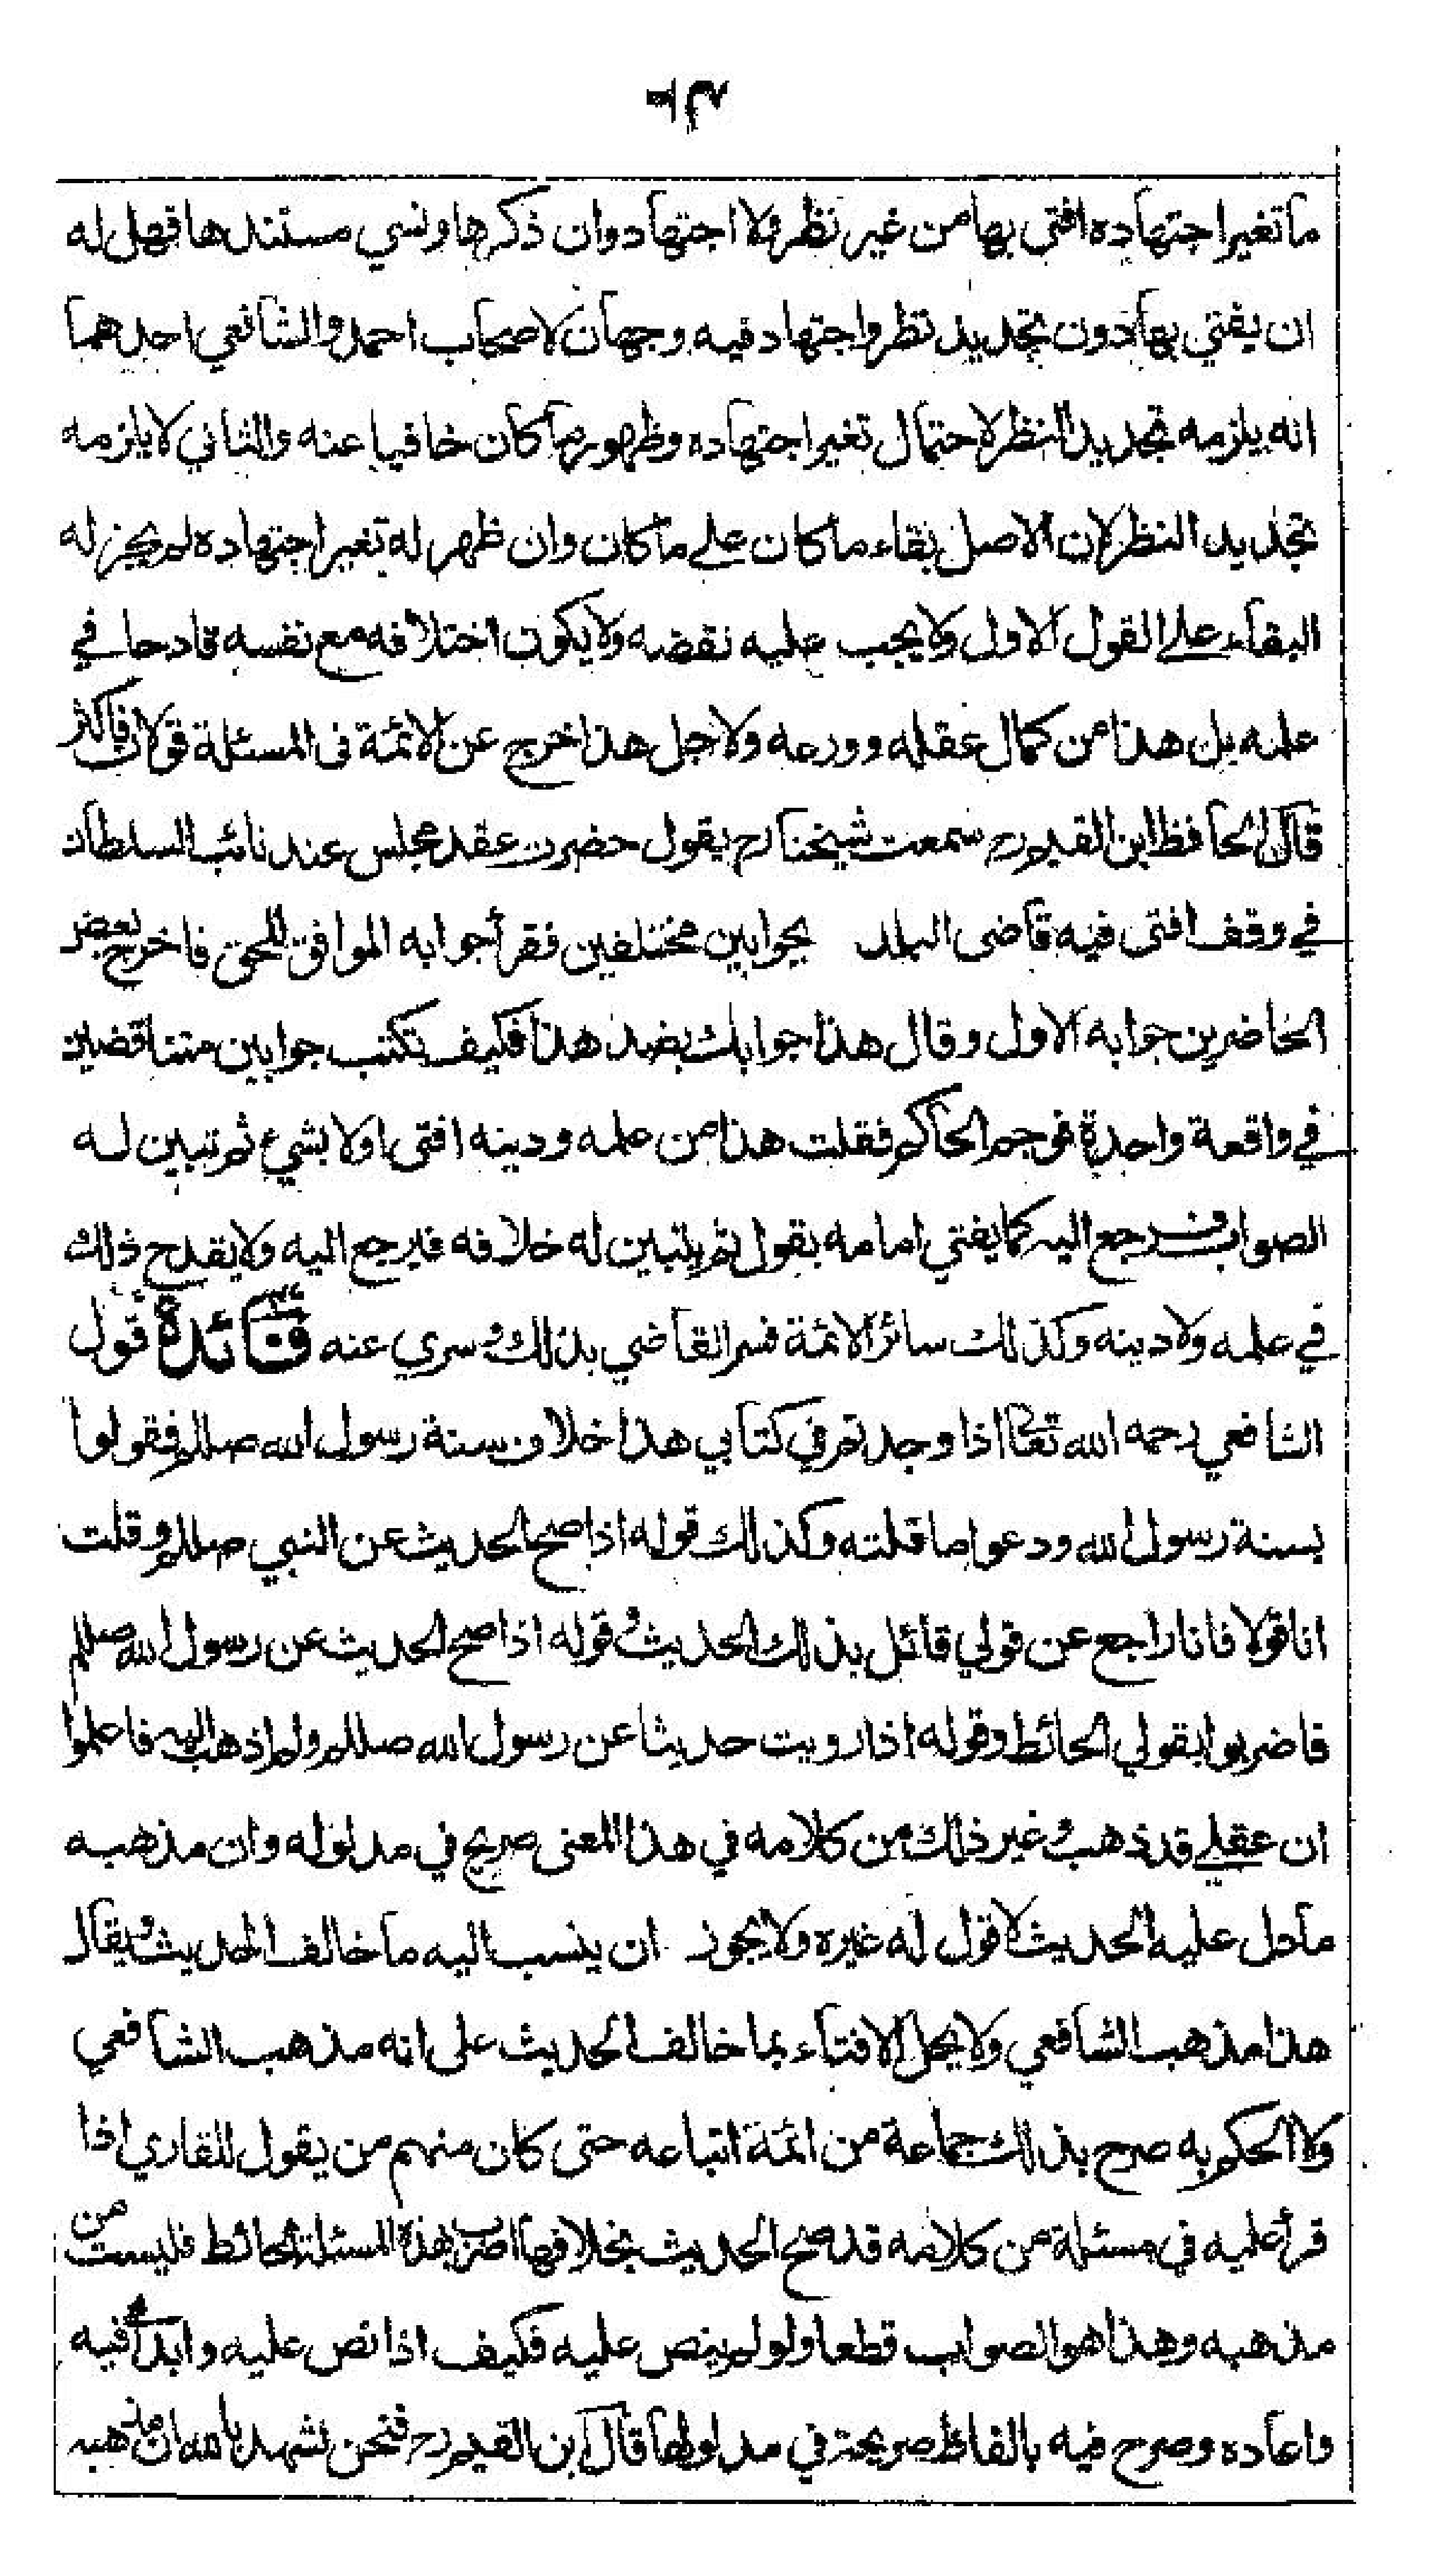 ما تغير اجتهاده افتى بها من غير نظر ولا اجتهاد وان ذكرها ونسي مستندها فهل له
ان يفتي بها دون تجديد نظر واجتهاد فيه وجهان لاصحاب احمد والشافعي احدهما
انه يلزمه تجديد النظر لاحتمال تغير اجتهاده وظهور ما كان خافيا عنه والثاني لا يلزمه
تجديد النظر لان الاصل بقاء ما كان على ما كان وان ظهر له تغير اجتهاده لم يجز له
البقاء على القول الاول ولا يجب عليه نقضه ولا يكون اختلافه مع نفسه قادحا في
علمه بل هذا من كمال عقله وورعه ولاجل هذا خرج عن الائمة فى المسئلة قولان فاكثر
قال الحافظ ابن القيم رح سمعت شيخنا رح يقول حضرت عقد مجلس عند نائب السلطان
في وقف افتى فيه قاضى البلد بجوابين مختلفين فقرأ جوابه الموافق للحق فاخرج بعض
الحاضرين جوابه الاول وقال هذا جوابك بضد هذا فكيف تكتب جوابين متناقضين
في واقعة واحدة فوجم الحاكم فقلت هذا من علمه ودينه افتى اولا بشيء ثم تبين له
الصواب فرجع اليه كما يفتي امامه بقول ثم يتبين له خلافه فيرجع اليه ولا يقدح ذلك
في علمه ولا دينه وكذلك سائر الائمة فسر القاضي بذلك وسري عنه فائدة قول
الشافعي رحمه الله تعالى اذا وجدتم في كتابي هذا خلاف سنة رسول الله صللم فقولوا
بسنة رسول الله ودعوا ما قلته وكذلك قوله اذا صح الحديث عن النبي صللم وقلت
انا قولا فانا راجع عن قولي قائل بذلك الحديث وقوله اذا صح الحديث عن رسول الله صللم
فاضربوا بقولي الحائط وقوله اذا رويت حديثا عن رسول الله صللم ولم اذهب اليه فاعلموا
ان عقلي قد ذهب وغير ذلك من كلامه في هذا المعنى صريح في مدلوله وان مذهبه
ما دل عليه الحديث لا قول له غيره ولا يجوز ان ينسب اليه ما خالف الحديث ويقال
هذا مذهب الشافعي ولا يحل الافتاء بما خالف الحديث على انه مذهب الشافعي
ولا الحكم به صرح بذلك جماعة من ائمة اتباعه حتى كان منهم من يقول للقاري اذا
قرأ عليه في مسئلة من كلامه قد صح الحديث بخلافها اضرب هذه المسئلة الحائط فليست من
مذهبه وهذا هو الصواب قطعا ولو لم ينص عليه فكيف اذا نص عليه وابدأ فيه
واعاده وصرح فيه بالفاظ صريحة في مدلولها قال ابن القيم رح فنحن نشهد بالله ان مذهبه